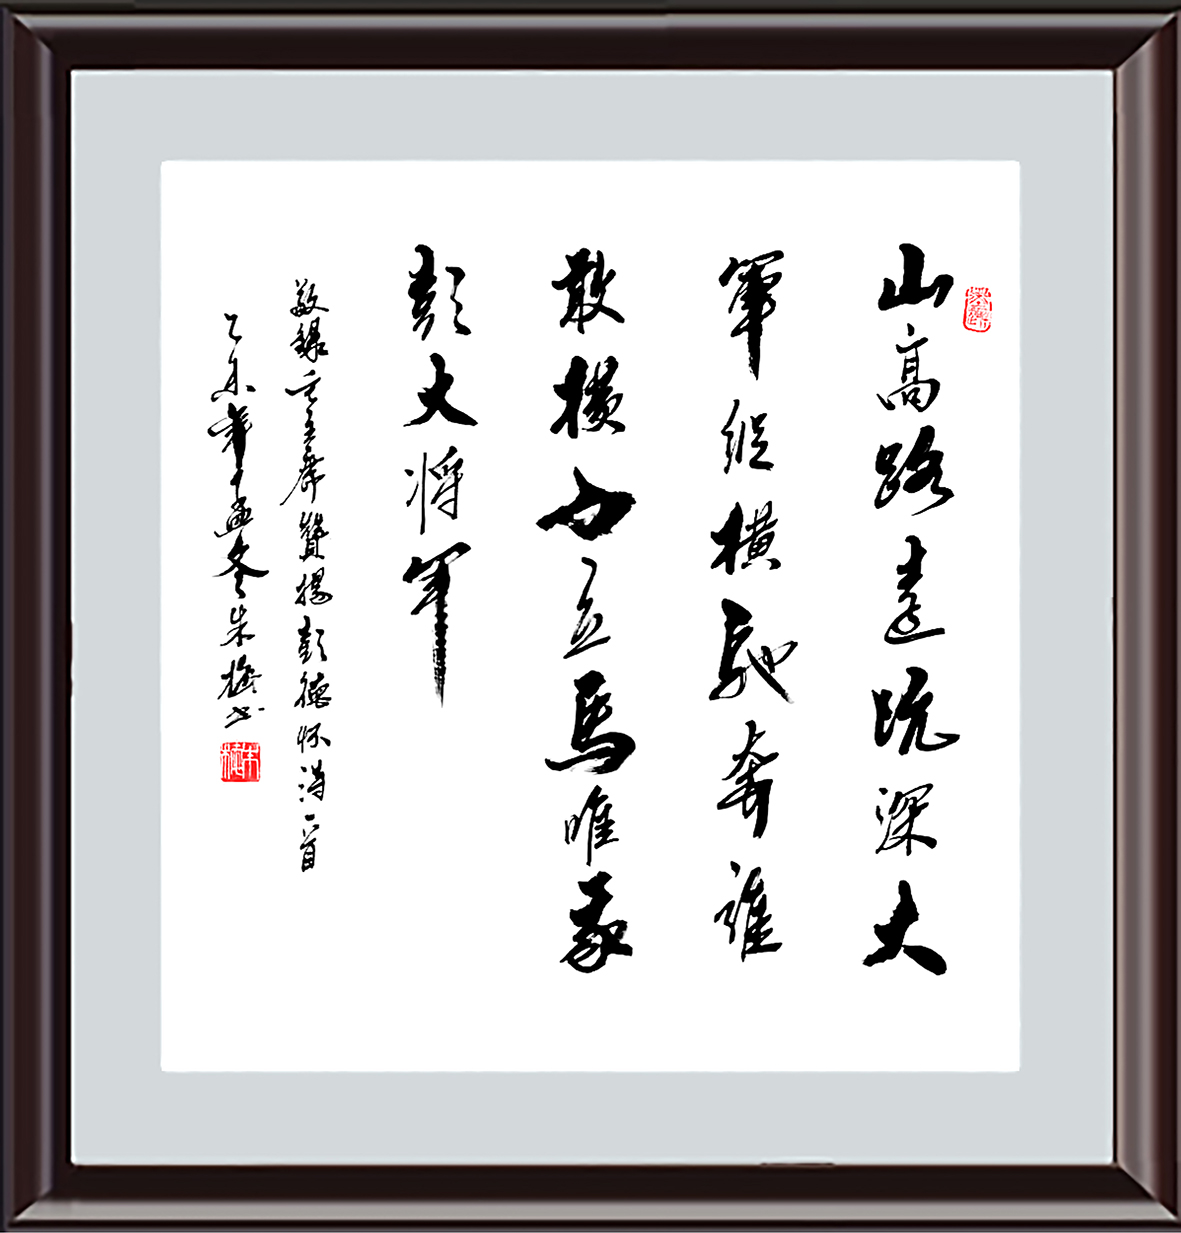 山高路遠坑深大
軍縱橫馳奔誰
敢橫刀立馬唯我
彭大将軍
敬録毛主席贊揚彭德怀詩一首
乙未年孟冬朱梅书